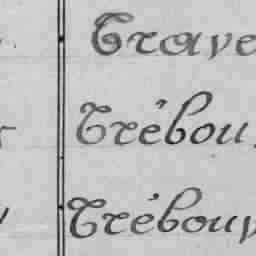 Trave
Trébou
Trébouv